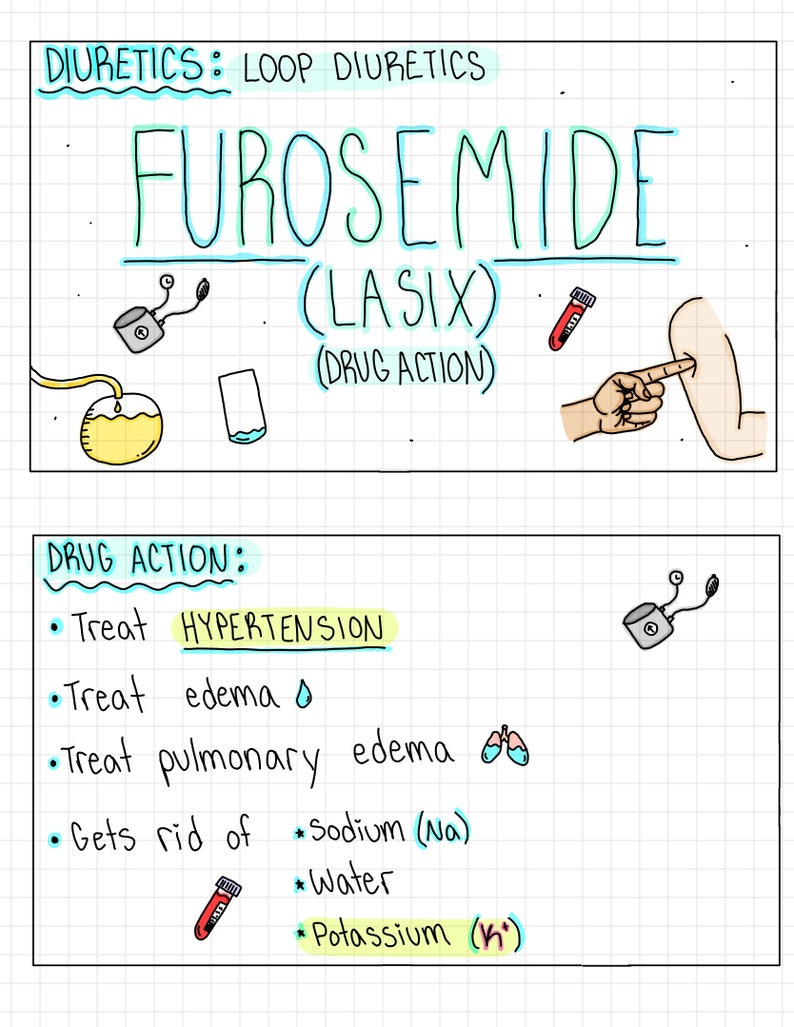 DIURETICS: LOOP DIURETICS
FUROSEMIDE
(LASIX)
(DRUG ACTION)
DRUG ACTION:
• Treat HYPERTENSION
• Treat edema
• Treat pulmonary edema
• Gets rid of
★ Sodium (Na)
★ Water
★ Potassium (K⁺)